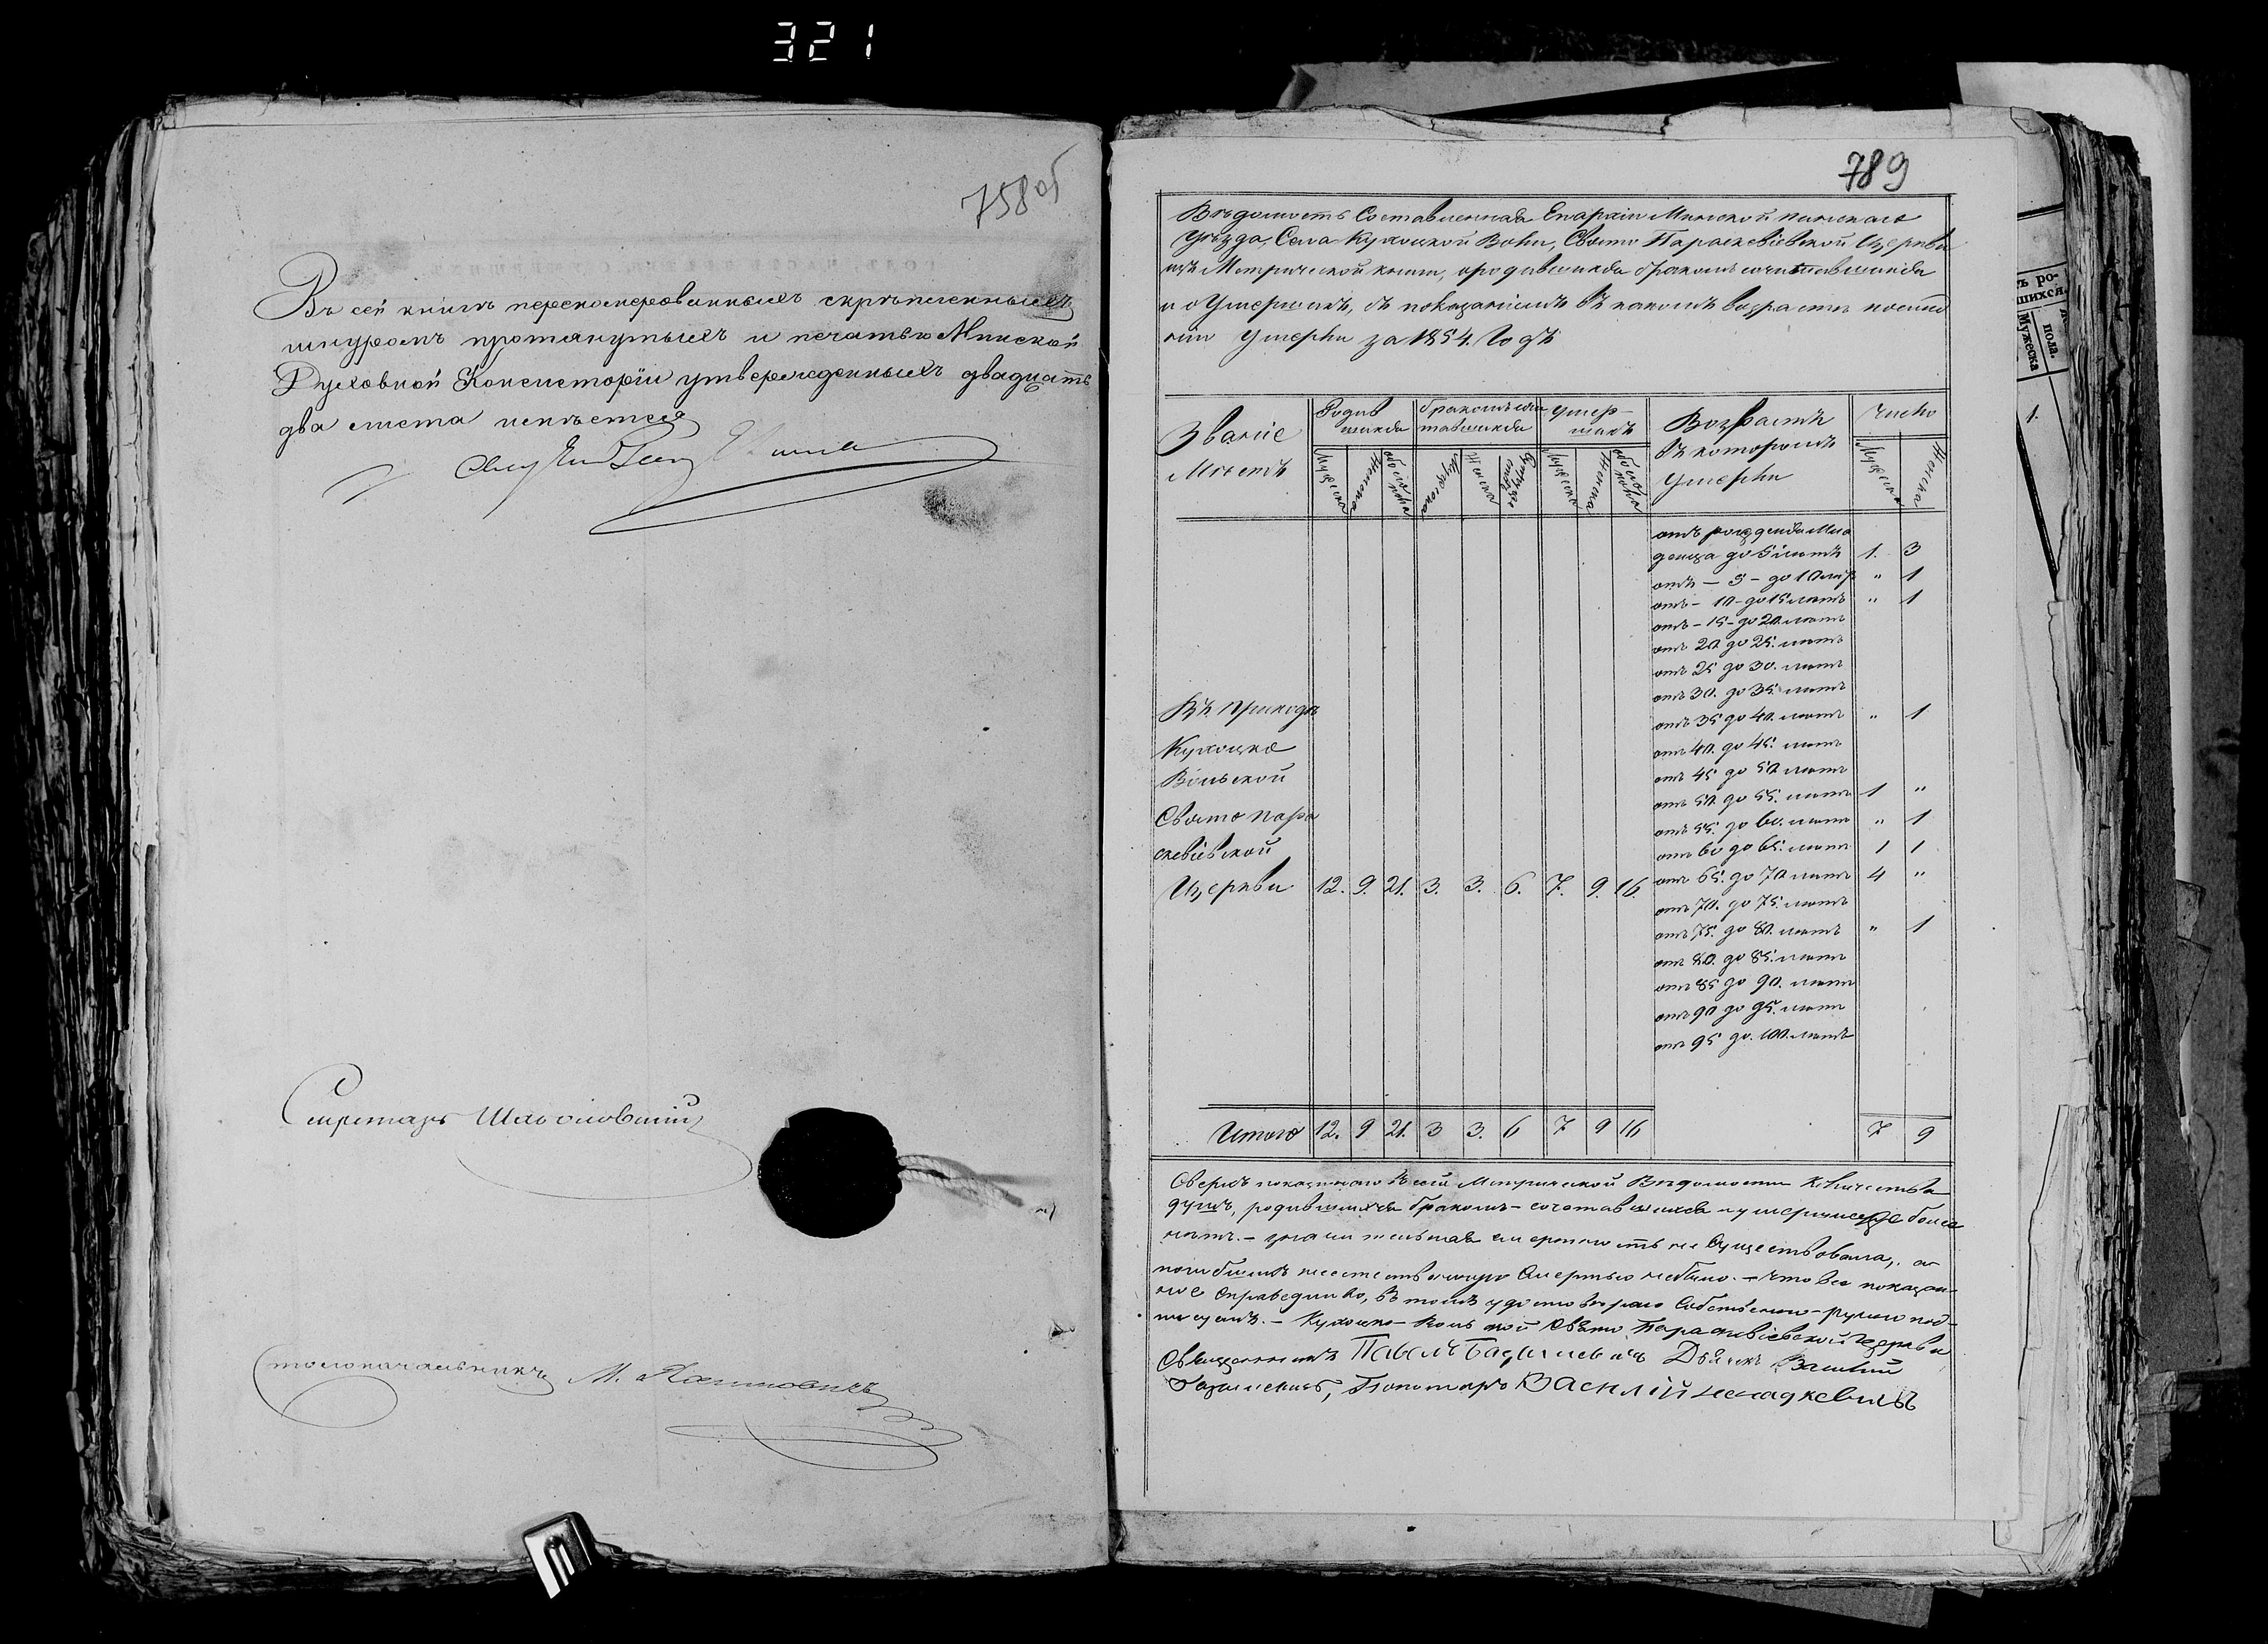 321
758об
Въ сей книгѣ перенумерованныхъ скрѣпленныхъ
шнуромъ протянутыхъ и печатью Минской
Духовной Консисторіи утвержденныхъ двадцать
два листа имѣется
Секретарь
Столоначальникъ М.
789
Вѣдомость Составленная Епархіи Минской Пинскаго
Уѣзда, Села Кухоцкой Воли, Свято Параскевіевской Церкви
изъ Метрической книги, о родившихся бракомъ сочетавшихся
и о Умершихъ, съ показаніемъ въ какомъ возрастѣ
Умерли за 1854. Годъ
Званіе Мѣстъ
Родив шихся
бракомъ соче тавшихся
Умер- шихъ
Возрастъ въ которомъ Умерли
Число
Мужеска Женска обоего пола Мужеска Женска Мужеска Женска обоего пола Мужеска Женска
отъ рожденія Мла
денца до 5 лѣтъ 1. 3
отъ - 5 - до 10 лѣт „ 1
отъ - 10 - до 15 лѣтъ „ 1
отъ - 15 - до 20. лѣтъ
отъ 20 до 25. лѣтъ
отъ 25 до 30. лѣтъ
отъ 30. до 35. лѣтъ
отъ 35 до 40. лѣтъ „ 1
отъ 40. до 45. лѣтъ
отъ 45 до 50 лѣтъ
отъ 50. до 55. лѣтъ 1 „
отъ 55. до 60. лѣтъ „ 1
отъ 60 до 65. лѣтъ 1 1
отъ 65. до 70 лѣтъ 4 „
отъ 70. до 75. лѣтъ
отъ 75. до 80. лѣтъ „ 1
отъ 80. до 85. лѣтъ
отъ 85 до 90. лѣтъ
отъ 90 до 95. лѣтъ
отъ 95 до. 100. лѣтъ
Въ Приходѣ
Кухоцко
Вольской
Свято Пара
скевіевской
Церкви 12. 9. 21. 3. 3. 6. 7. 9. 16.
Итого 12. 9 21. 3 3. 6 7 9 16 7 9
Сверхъ показаннаго въ сей Метрической Вѣдомости Количества
душъ, родившихся бракомъ - сочетавшихся и умершихъ болѣе
нѣтъ. - смертность не Существовала, а
погибшихъ смертью небыло. - Что все показан-
ное Справедливо, въ томъ удостовѣряю Собственно-ручно под-
писуемъ. - Кухоцко-Вольской Свято Параскевіевской Церкви
Священникъ Павелъ Базилевичъ Дьячекъ
Базилевичъ, Пономарь Василій
ъ ро-
шихся.
пола.
Мужеска
1.